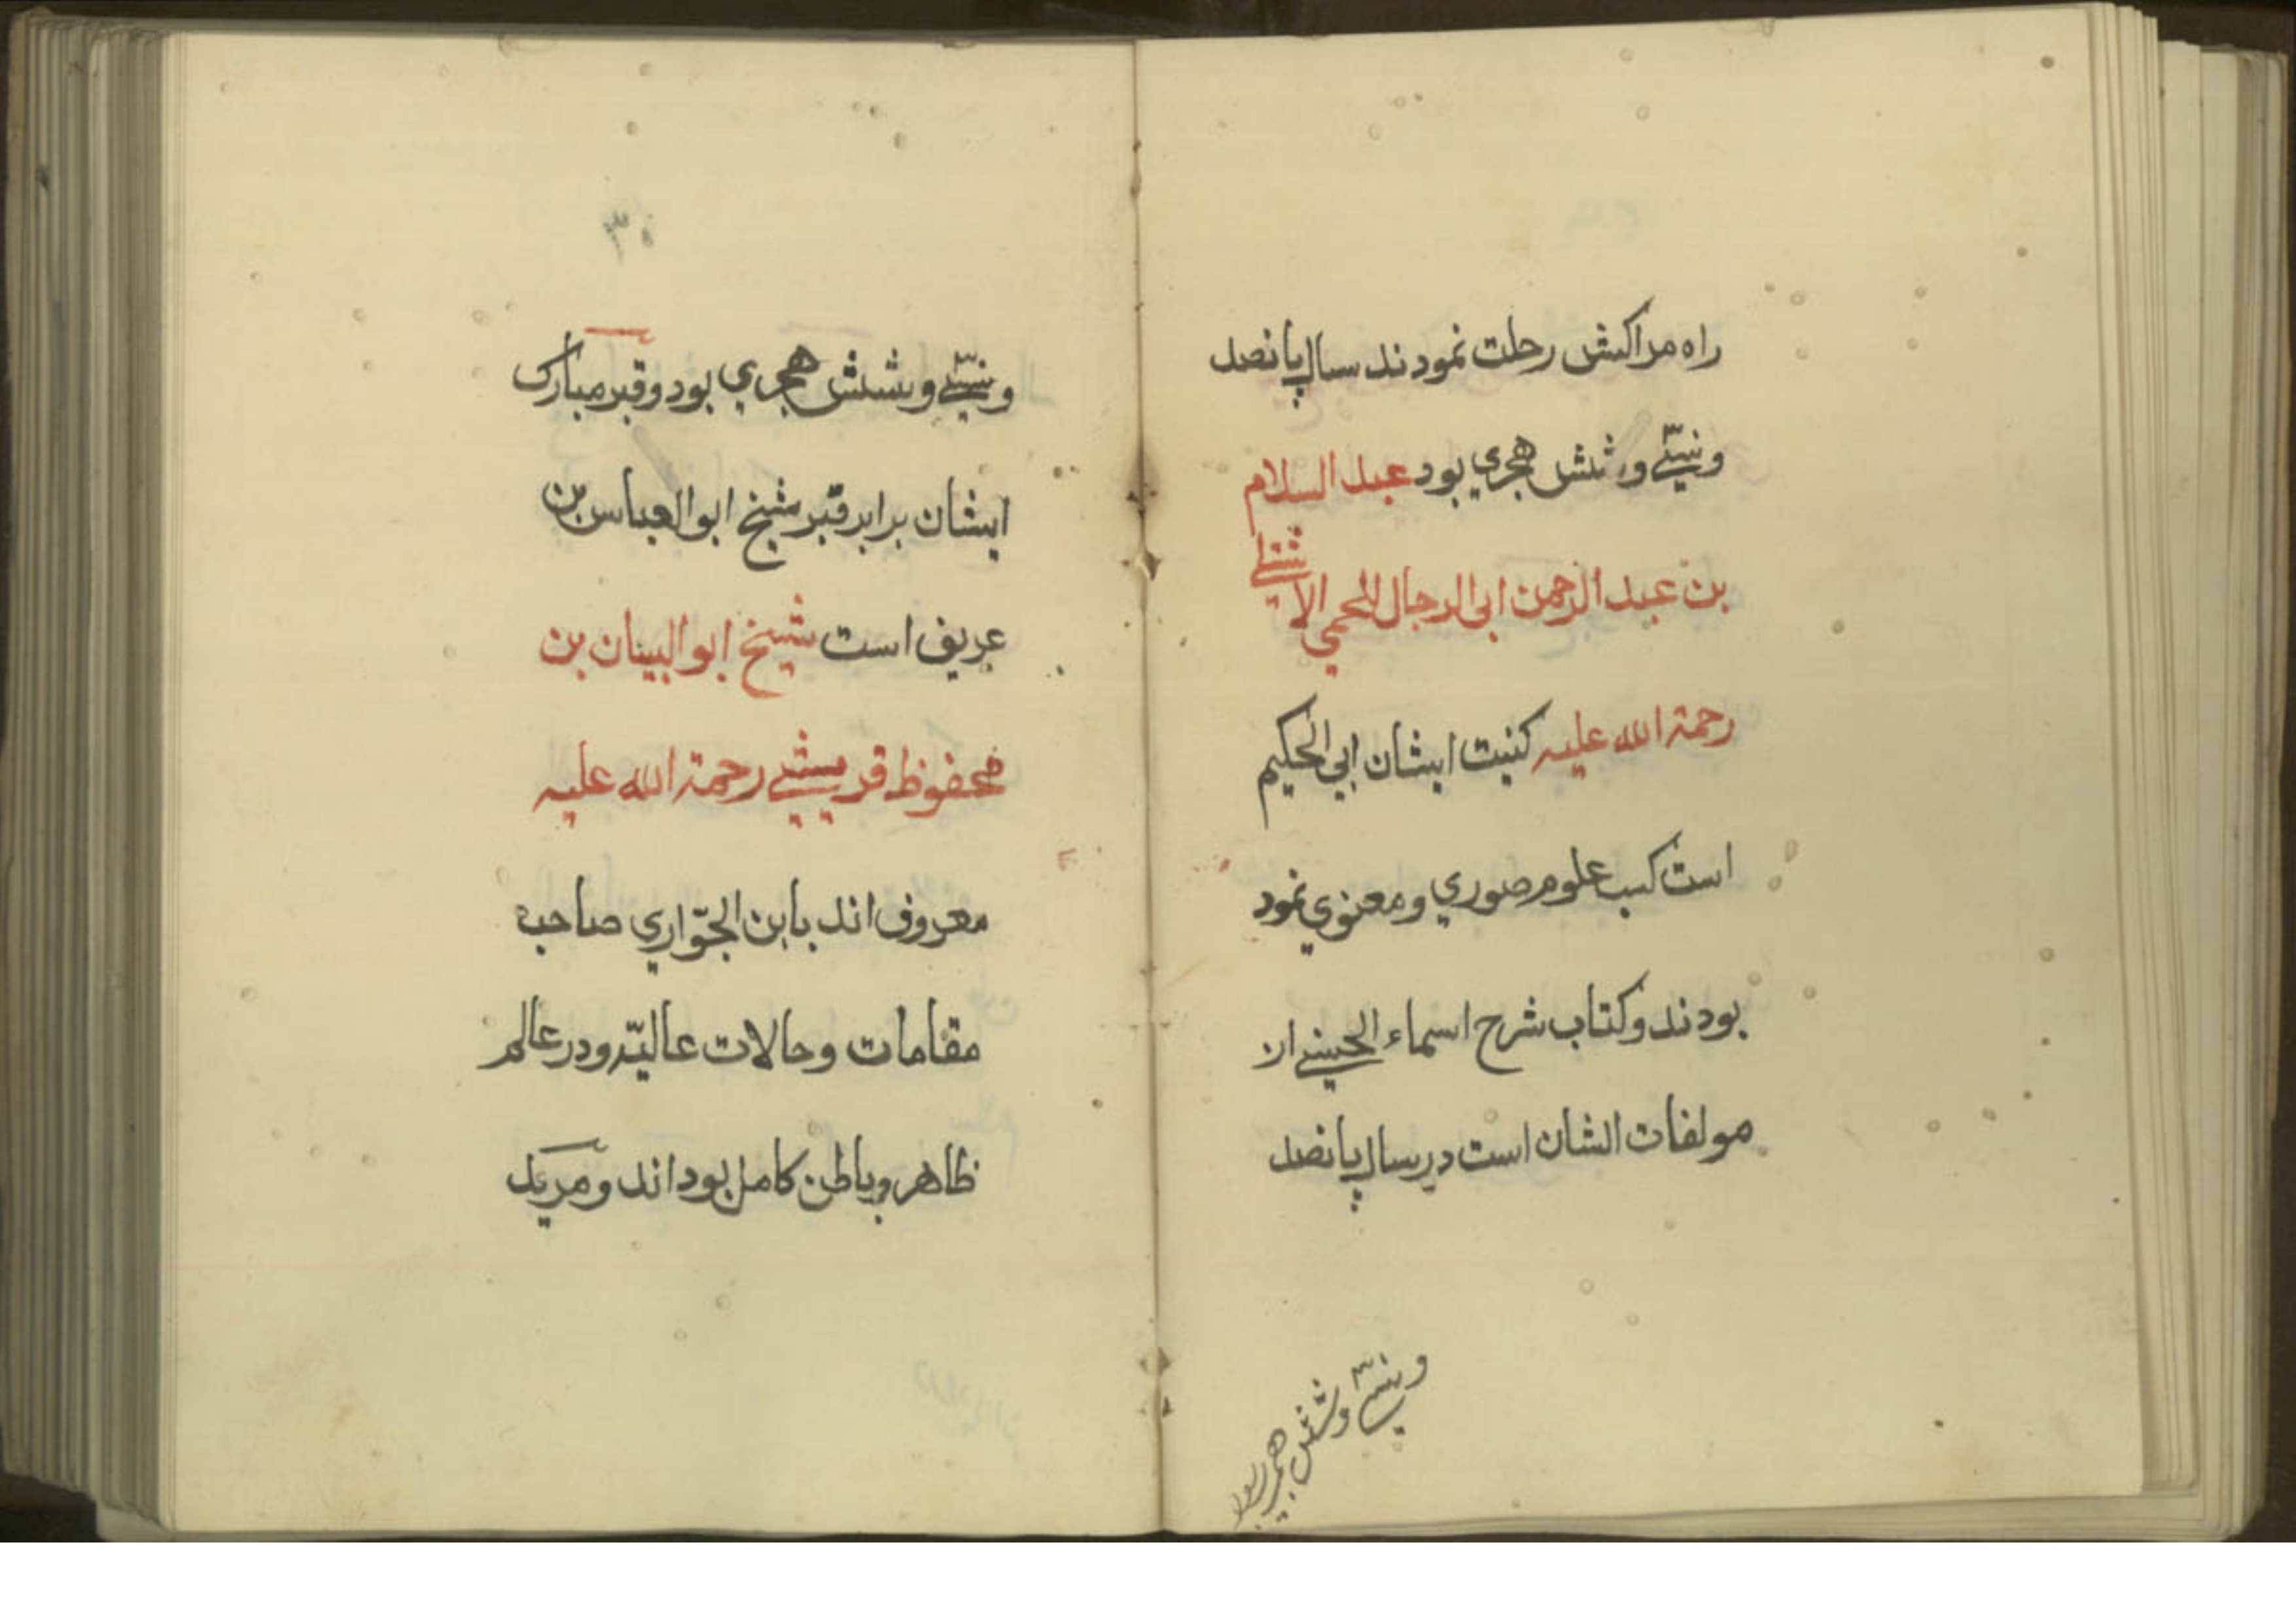 راه مراکش رحلت نمودند سال پانصد
وسّي و شش هجري بود عبد السلام
بن عبد الرحمن ابی الرجال اللخمي الاشبیلی
رحمة الله علیه کنیت ایشان ابي الحکیم
است کسب علوم صوري و معنوي نمود
بودند و کتاب شرح اسماء الحسني از
مولفات الشان است در سال پانصد
وسّي و شش هجري بود
۳۰
وسّي و شش هجري بود و قبر مبارک
ایشان برابر قبر شیخ ابو العباس بن
عریف است شیخ ابو البینان بن
محفوظ قریشي رحمة الله علیه
معروف اند بابن الجوّاري صاحب
مقامات و حالات عالیّه و در عالم
ظاهر و باطن کامل بود اند و مرید